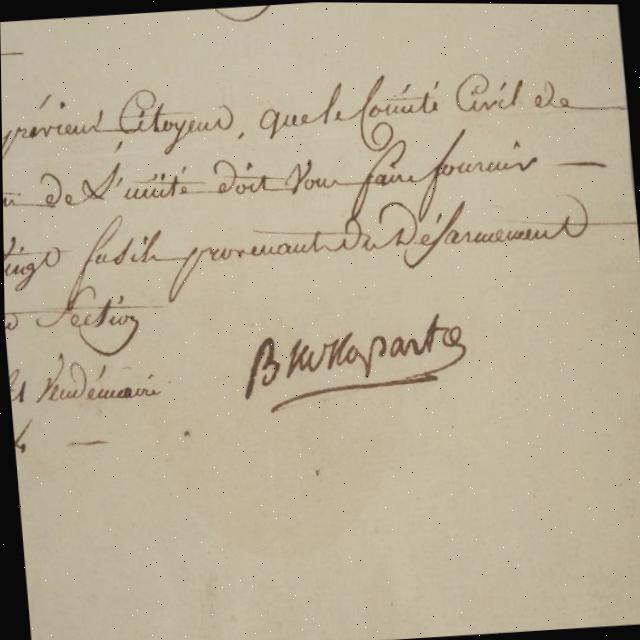 préviens Citoyens, que le Comité Civil de
de L'unité doit Vous faire fournir —
vingt fusils provenant du Désarmement
Section
Vendémiaire
4 —
Buonaparte